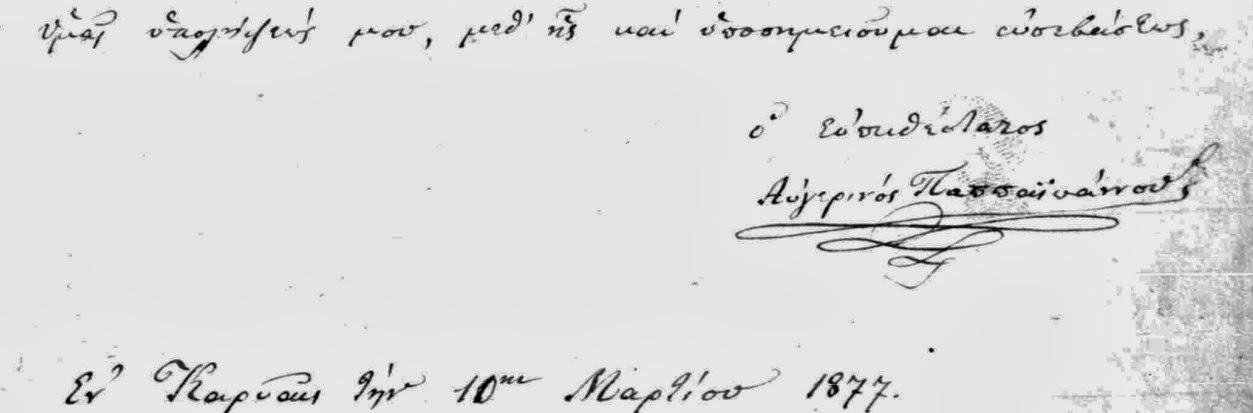 ὑμᾶς ὑπολήψεώς μου, μεθ' ἧς καὶ ὑποσημειοῦμαι εὐσεβάστως,
ὁ εὐπειθέστατος
Αὐγερινός Παππαϊωάννου
Ἐν Καρυαῖς τήν 10ην Μαρτίου 1877.